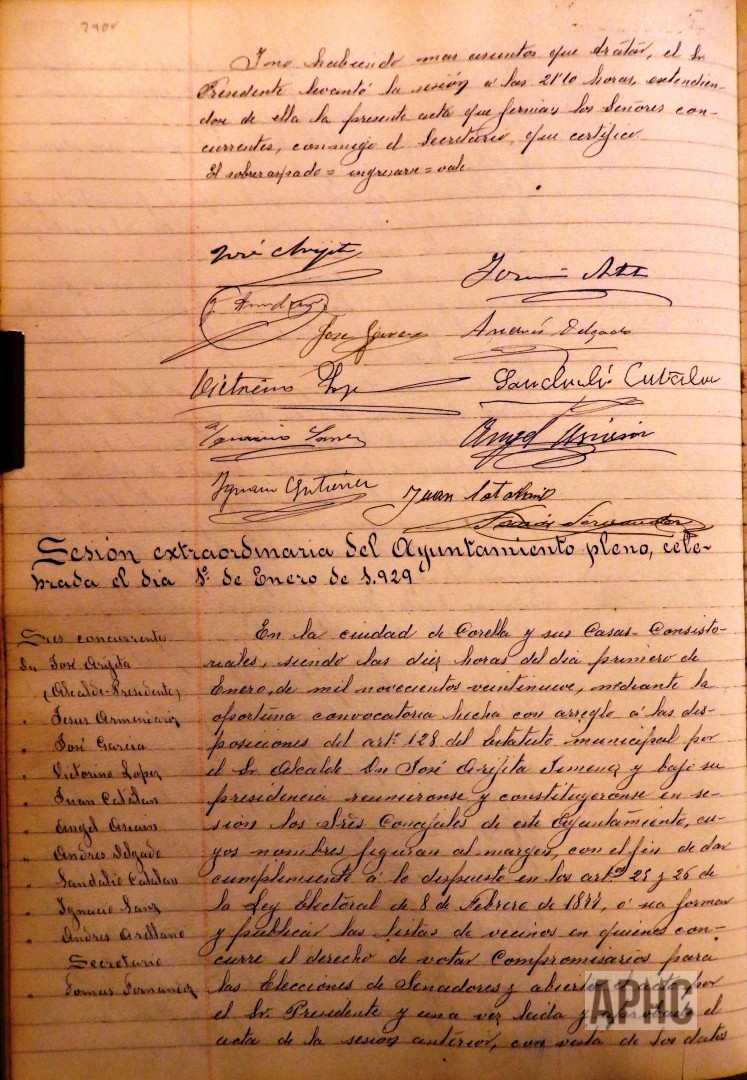 290v
Y no habiendo mas asuntos que tratar, el Sr.
Presidente levantó la sesión á las 21'10 horas, extendien-
dose de ella la presente acta que firman los Señores con-
currentes, conmigo el Secretario, que certifico.
El sobreraspado = ingresare = vale
José Arijita
José Garcia
Andrés Delgado
Victorino Lopez
Sandalio Catalan
Ignacio Sanz
Angel
Ignacio Gutiérrez
Juan Catalan
Tomás Fernandez
Sesión extraordinaria del Ayuntamiento pleno, cele-
brada el dia 1º de Enero de 1.929
Sres concurrentes
Dn José Arijita
(Alcalde-Presidente)
" Jesus Armendariz
" José Garcia
" Victorino Lopez
" Juan Catalan
" Angel
" Andres Delgado
" Sandalio Catalan
" Ignacio Sanz
" Andres Arellano
Secretario
" Tomas Fernandez
En la ciudad de Corella y sus Casas-Consisto-
riales, siendo las diez horas del dia primero de
Enero, de mil novecientos veintinueve, mediante la
oportuna convocatoria hecha con arreglo á las dis-
posiciones del artº 128 del Estatuto municipal por
el Sr. Alcalde Dn José Arijita Jimenez y bajo su
presidencia reunieronse y constituyeronse en se-
sion los Sres Concejales de este Ayuntamiento, cu-
yos nombres figuran al margen, con el fin de dar
cumplimiento á lo dispuesto en los artos 25 y 26 de
la Ley Electoral de 8 de Febrero de 1877, ó sea formar
y publicar las listas de vecinos en quienes con-
curre el derecho de votar Compromisarios para
las Elecciones de Senadores y abierto el acto por
el Sr. Presidente y una vez leida y aprobada el
acta de la sesión anterior, con vista de los datos
APHC